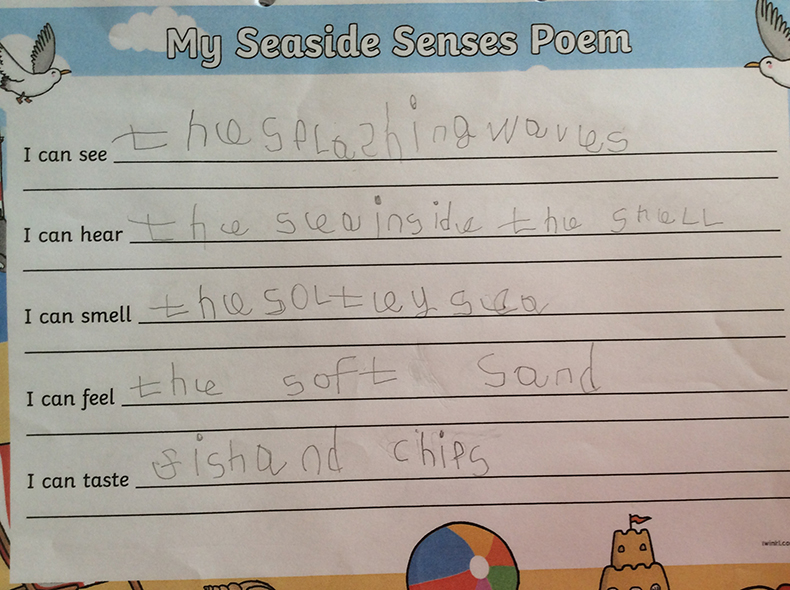 My Seaside Senses Poem
I can see the splashing waves
I can hear the sea inside the shell
I can smell the soltey sea
I can feel the soft sand
I can taste fish and chips
twinkl.co